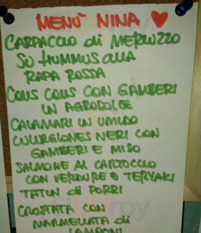 MENÙ NINA
CARPACCIO di MERLUZZO
SU HUMMUS alla
RAPA ROSSA
COUS COUS CON GAMBERI
IN AGRODOLCE
CALAMARI IN UMIDO
CULURGIONES NERI CON
GAMBERI E MISO
SALMONE AL CARTOCCIO
CON VERDURE E TERYAKI
TATIN di PORRI
CROSTATA CON
MARMELLATA di
LAMPONI